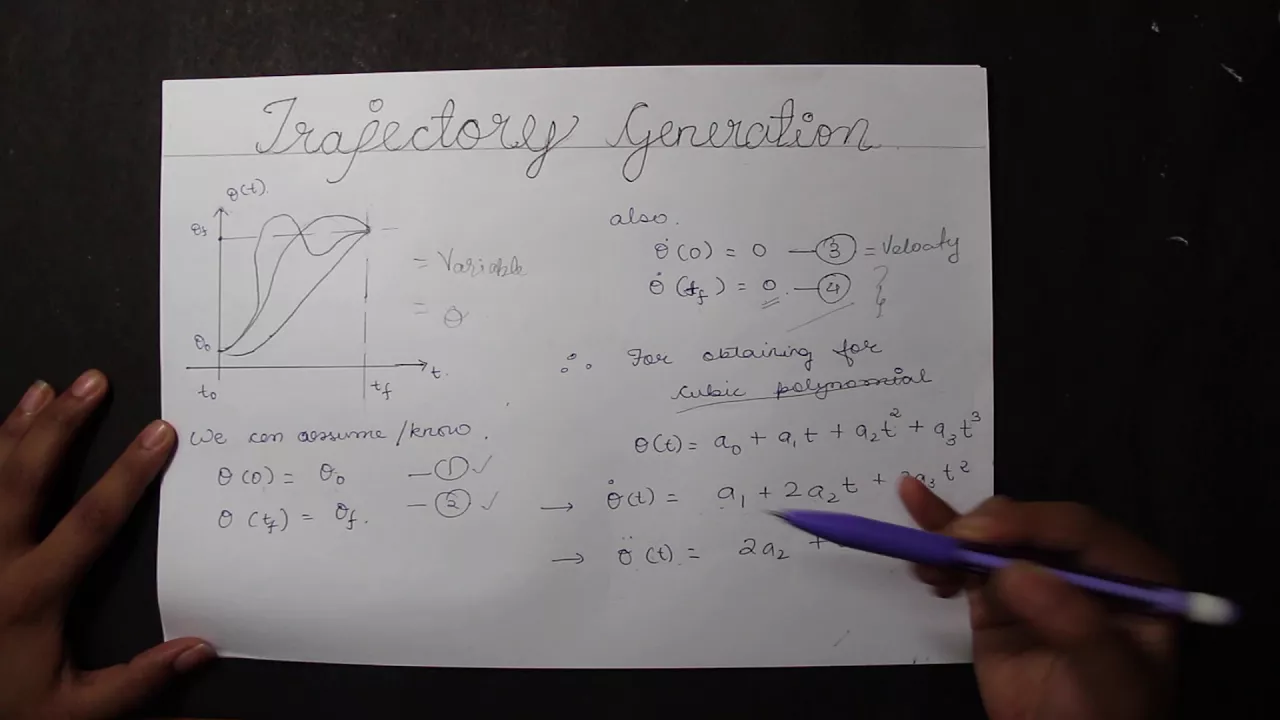 Trajectory Generation
θ(t).
θf
θ0
t0
tf
t.
= Variable
= θ
We can assume/know.
θ(0) = θ0 — ① ✓
θ(tf) = θf. — ② ✓
also.
θ̇(0) = 0 — ③ = Velocity
θ̇(tf) = 0. — ④ }
∴ For obtaining for
cubic polynomial
θ(t) = a0 + a1t + a2t² + a3t³
→ θ̇(t) = a1 + 2a2t + 3a3t²
→ θ̈(t) = 2a2 +